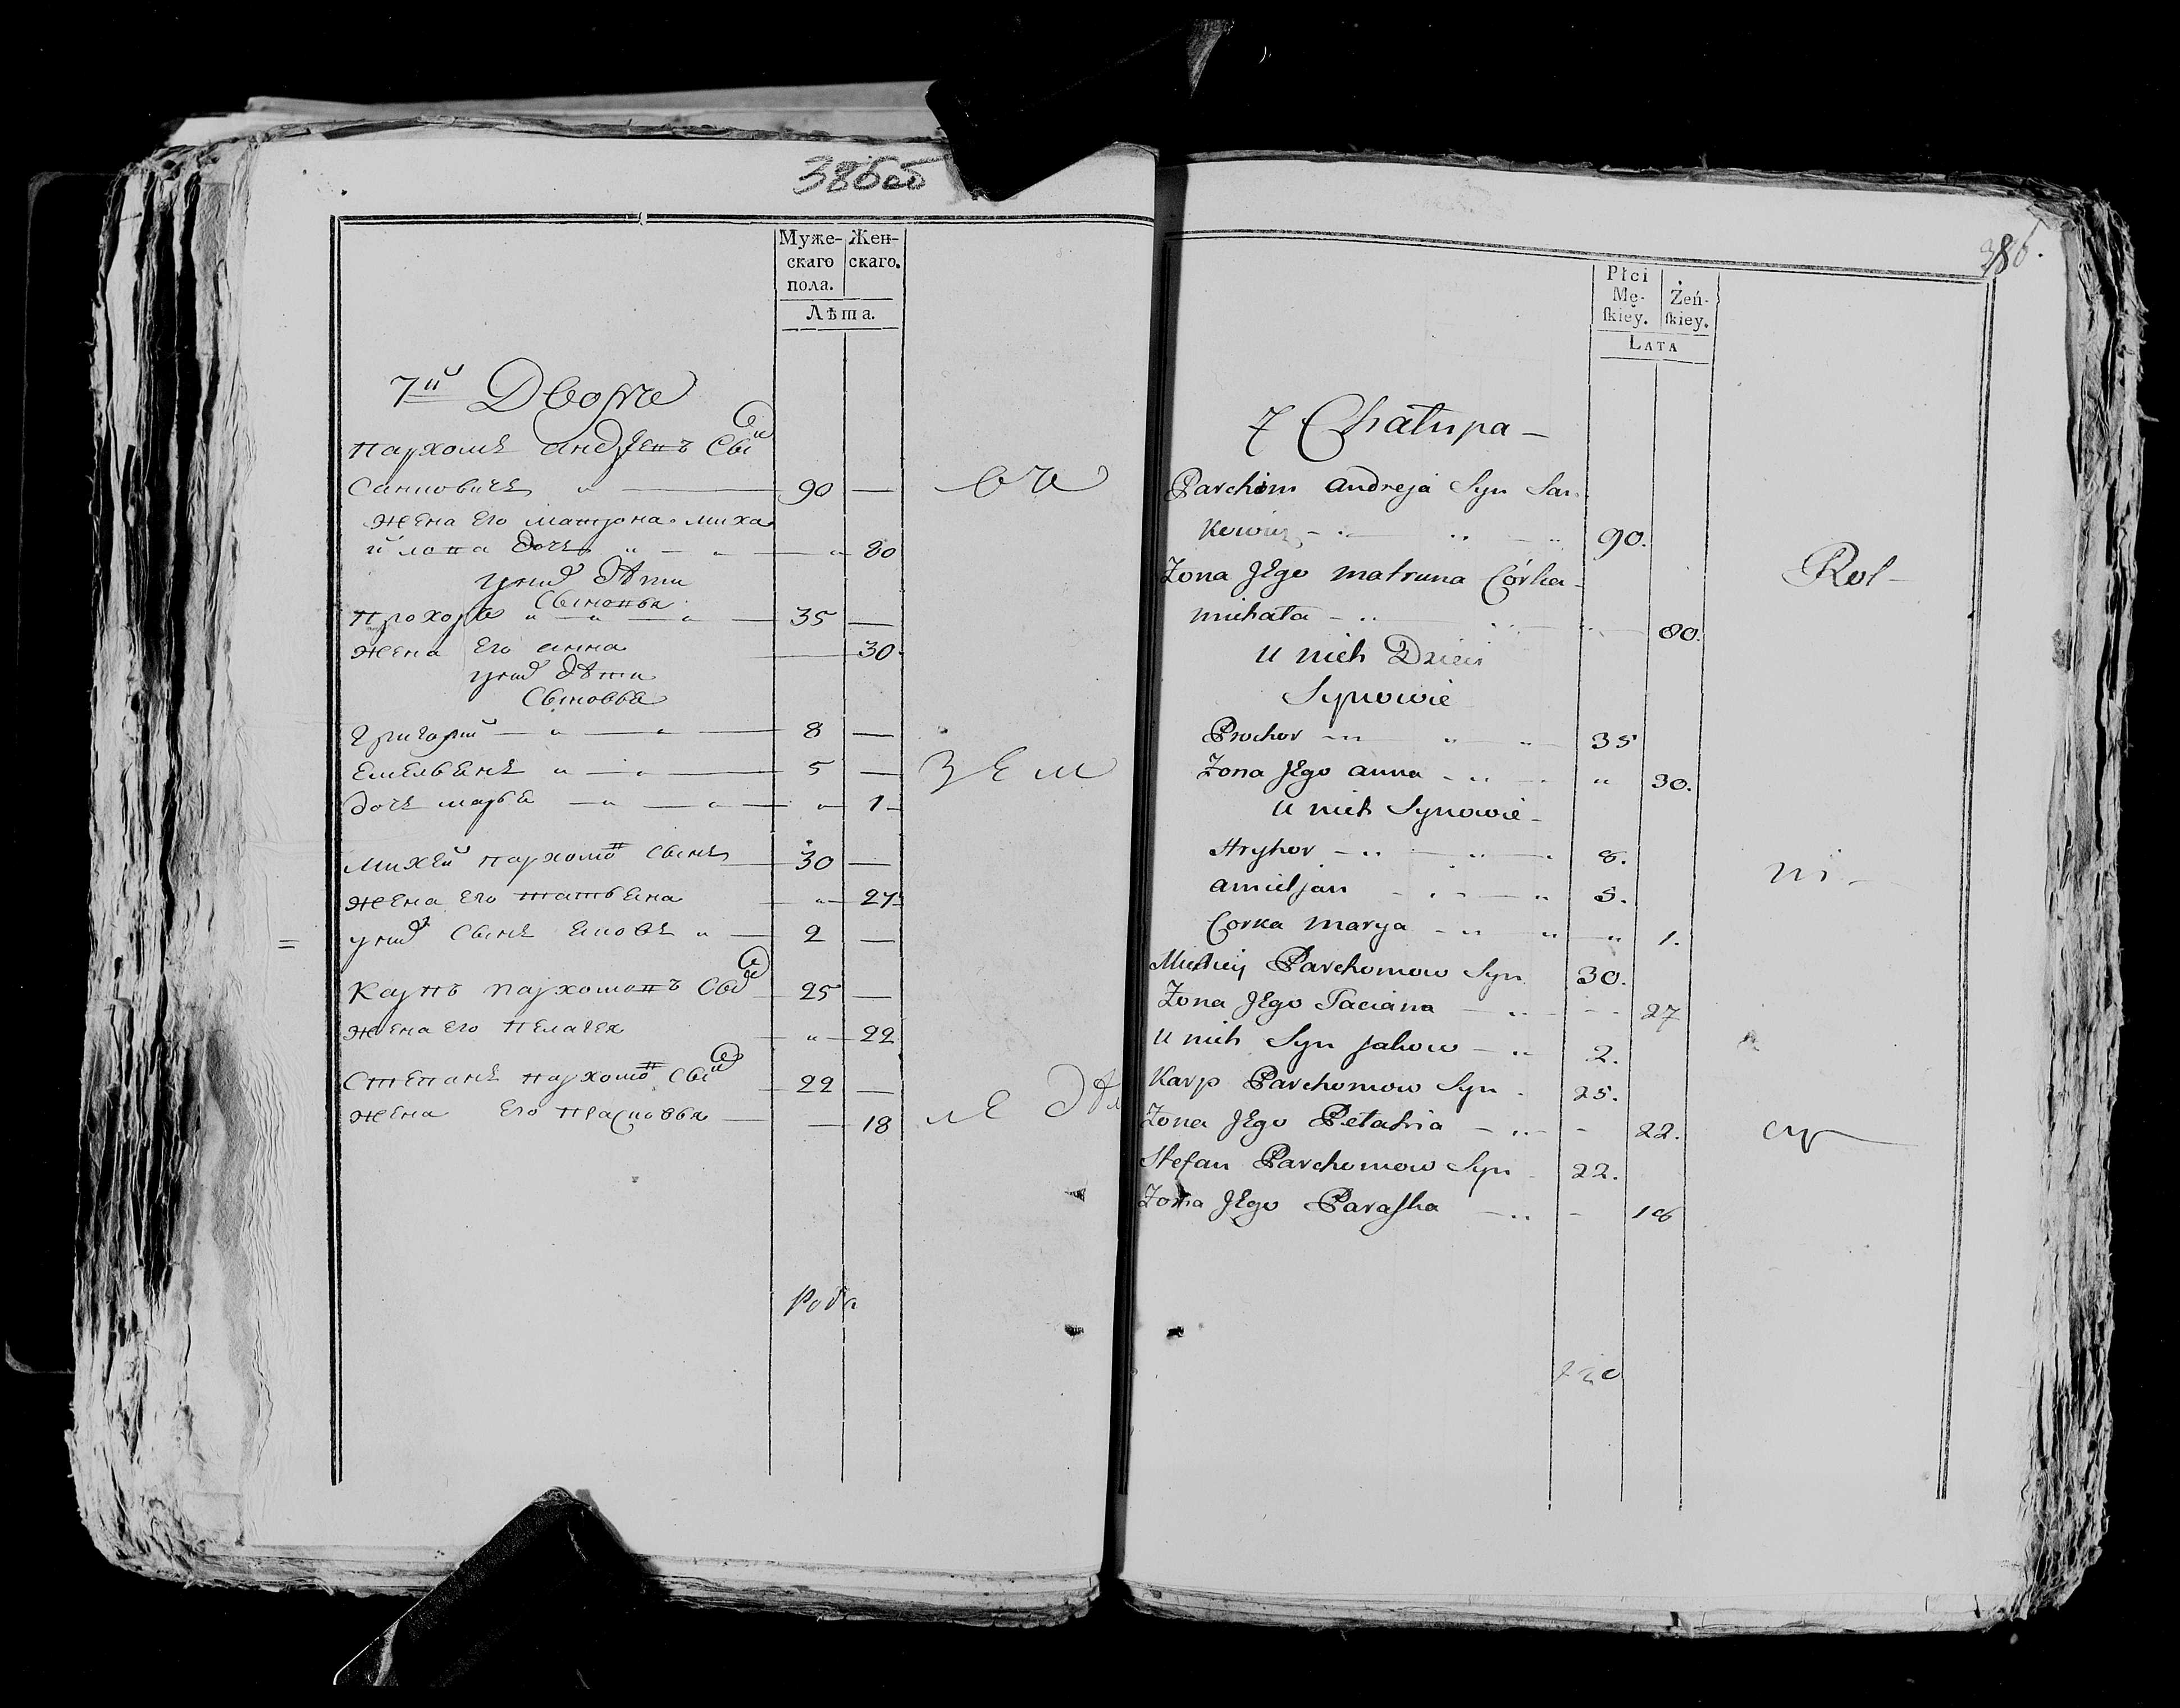 386об
Муже-
скаго
пола.
Жен-
скаго.
Лѣта.
7й Дворъ
Пархомъ андреевъ Сынъ
90 —
жена Его матрона миха
йлова дочь " — " — " 80
у них дѣти
Сыновья
Прохоръ " — " — " — 35 —
жена Его анна — 30
у них дѣти
Сыновья
Григорий — " — " — 8 —
Емельянъ " — " — 5 —
дочь марья — " — " — " 1
михей пархомов Сынъ 30 —
жена Его татьяна " 27
у них Сынъ Яковъ " — 2 —
Карпъ пархомовъ Сынъ 25 —
жена Его пелагея " 22
Степанъ пархомов Сынъ 22 —
жена Его прасковья — 18
зем
ле дѣл
386.
Płci
Mę-
skiey.
Żeń-
skiey.
LATA
7 Chałupa —
Parchom Andreja Syn San-
kowicz 90.
Żona Jego Matruna Córka
Michała — 80.
U nich Dzieci
Synowie
Prochor — " " 35
Żona Jego Anna — " 30.
U nich Synowie
Hryhor — " " 8.
Amieljan — " 5.
Corka Marya — " " " 1.
Michiey Parchomow Syn 30.
Żona Jego Taciana — 27
U nich Syn Jakow — 2.
Karp Parchomow Syn 25.
Żona Jego Pełahia — 22.
Stefan Parchomow Syn 22.
Żona Jego Paraska — 18
Rol-
ni-
cy